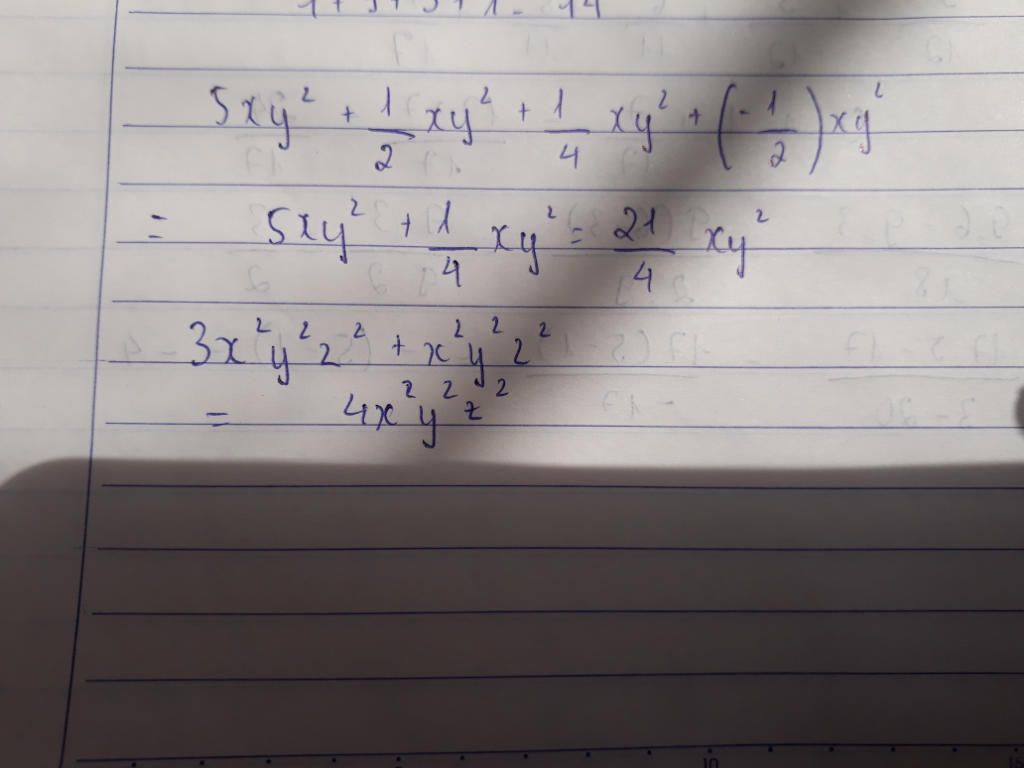 5xy² + 1/2 xy² + 1/4 xy² + (-1/2) xy²
= 5xy² + 1/4 xy² = 21/4 xy²
3x²y²z² + x²y²z²
= 4x²y²z²
10